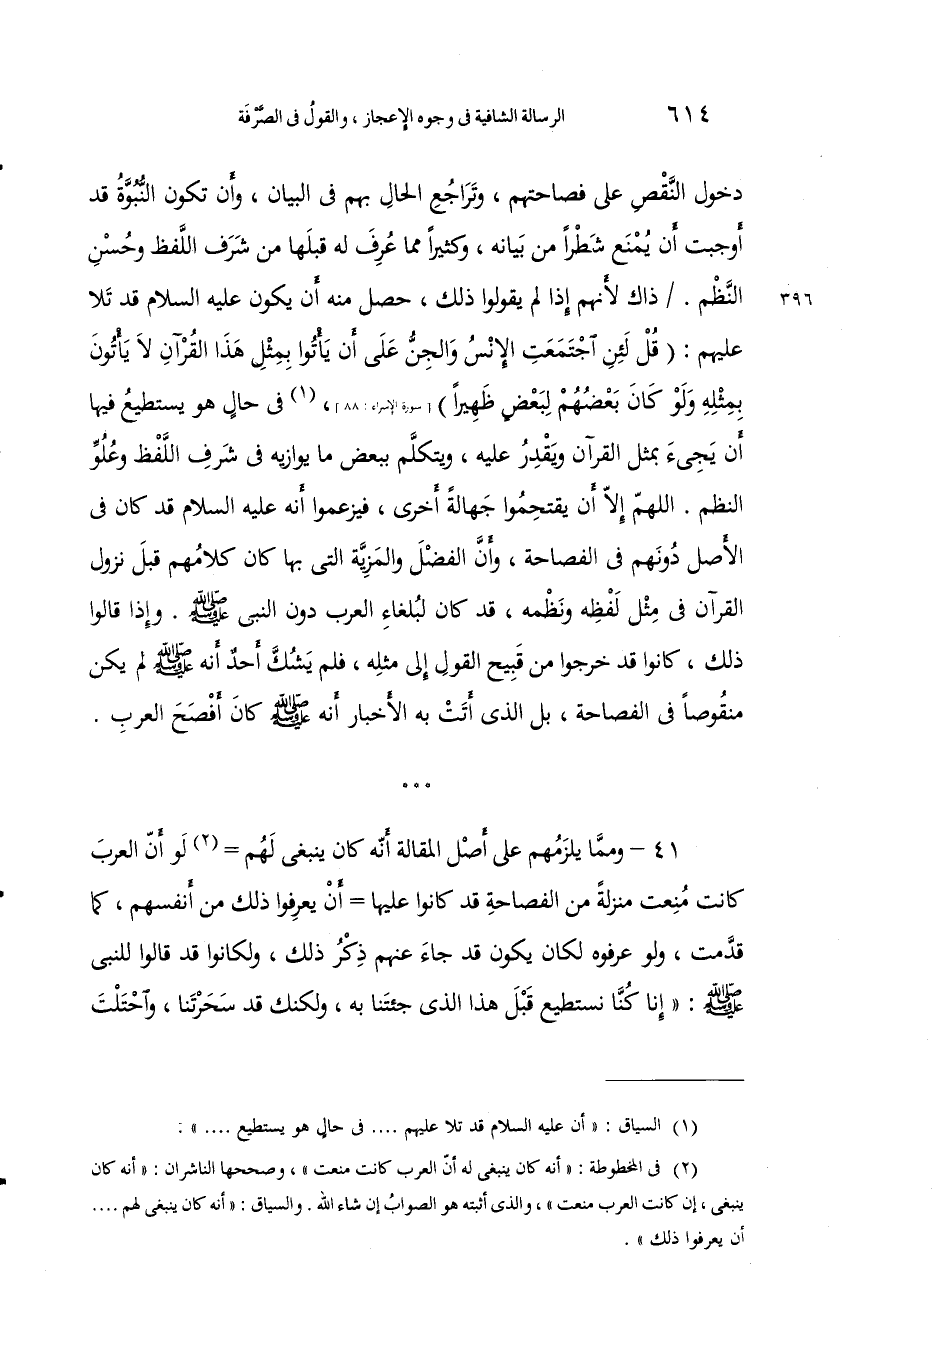 ٦١٤ الرسالة الشافية فى وجوه الإعجاز ، والقولُ فى الصَّرْفَة
دخول النَّقْصِ على فصاحتهم ، وتَرَاجُعِ الحالِ بهم فى البيان ، وأَن تكون النُّبُوَّةُ قد
أَوجبت أَن يُمْنَع شَطْراً من بَيانه ، وكثيراً مما عُرِفَ له قبلَها من شَرَف اللَّفظ وحُسْنِ
النَّظْم . / ذاك لأَنهم إِذا لم يقولوا ذلك ، حصل منه أَن يكون عليه السلام قد تَلا ٣٩٦
عليهم : ( قُلْ لَئِنِ ٱجْتَمَعَتِ الإِنْسُ وَالجِنُّ عَلَى أَن يَأْتُوا بِمِثْلِ هَذَا القُرْآنِ لاَ يَأْتُونَ
بِمِثْلِهِ وَلَوْ كَانَ بَعْضُهُمْ لِبَعْضٍ ظَهِيراً ) [ سورة الإسراء : ٨٨ ] ، (١) فى حالٍ هو يستطيعُ فيها
أَن يَجِىءَ بمثل القرآن ويَقْدِرُ عليه ، ويتكلَّم ببعض ما يوازيه فى شَرَفِ اللَّفْظ وعُلُوِّ
النظم . اللهمّ إِلاّ أَن يقتحِمُوا جَهالةً أُخرى ، فيزعموا أَنه عليه السلام قد كان فى
الأَصل دُونَهم فى الفصاحة ، وأَنَّ الفضْلَ والمَزِيَّة التى بها كان كلامُهم قبلَ نزول
القرآن فى مِثْل لَفْظِه ونَظْمه ، قد كان لبُلغاءِ العرب دون النبى ﷺ . وإِذا قالوا
ذلك ، كانوا قد خرجوا من قَبِيح القول إِلى مثلِه ، فلم يَشُكَّ أَحدٌ أَنه ﷺ لم يكن
منقُوصاً فى الفصاحة ، بل الذى أَتَتْ به الأَخبار أَنه ﷺ كانَ أَفْصَحَ العربِ .
° ° °
٤١ – وممَّا يلزَمُهم على أَصْل المقالة أَنّه كان ينبغى لَهُم = (٢) لَو أَنّ العربَ
كانت مُنِعت منزلةً من الفصاحةِ قد كانوا عليها = أَنْ يعرِفوا ذلك من أَنفسهم ، كما
قدَّمت ، ولو عرفوه لكان يكون قد جاءَ عنهم ذِكْرُ ذلك ، ولكانوا قد قالوا للنبى
ﷺ : « إِنا كُنَّا نستطيع قَبْلَ هذا الذى جئتَنا به ، ولكنك قد سَحَرْتَنا ، وٱحْتَلْتَ
(١) السياق : « أن عليه السلام قد تلا عليهم .... فى حالٍ هو يستطيع .... » :
(٢) فى المخطوطة : « أنه كان ينبغى له أنّ العرب كانت منعت » ، وصححها الناشران : « أنه كان
ينبغى ، إن كانت العرب منعت » ، والذى أثبته هو الصوابُ إن شاء الله . والسياق : « أنه كان ينبغى لهم ....
أن يعرفوا ذلك » .